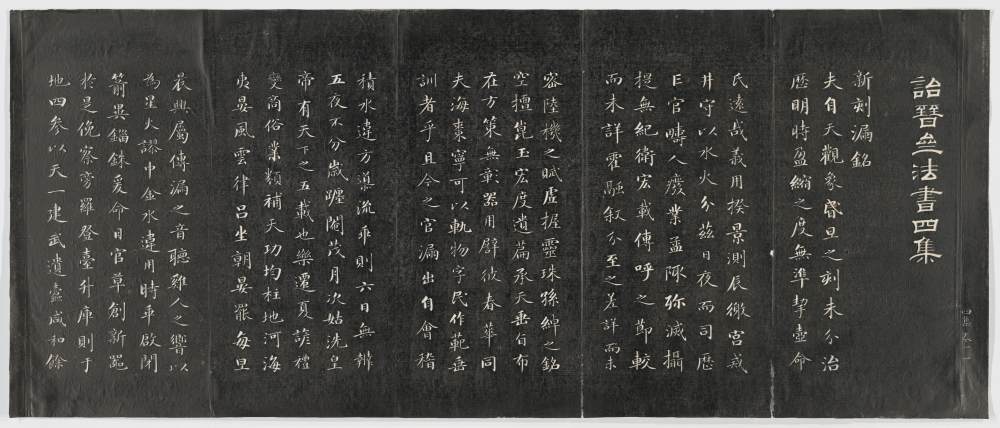 詒晉齋法書四集
新刻漏銘
夫自天觀象昏旦之刻未分治
歷明時盈縮之度無準挈壺命
氏遠哉義用揆景測辰徼宮戒
井守以水火分茲日夜而司歷
亡官疇人廢業孟陬殄滅攝
提無紀衛宏載傳呼之節較
而未詳霍融叙分至之差詳而未
密陸機之賦虛握靈珠孫綽之銘
空擅崑玉宏度遺篇承天垂旨布
在方策無彰器用譬彼春華同
夫海棗寧可以軌物字民作範垂
訓者乎且今之官漏出自會稽
積水違方導流乖則六日無辨
五夜不分歲躔閹茂月次姑洗皇
帝有天下之五載也樂遷夏諺禮
變商俗業類補天功均柱地河海
夷晏風雲律呂坐朝晏罷每旦
晨興屬傳漏之音聽雞人之響以
為星火謬中金水違用時乖啟閉
箭異錙銖爰命日官草創新器
於是俛察旁羅登臺升庫則于
地四參以天一建武遺蠹咸和餘